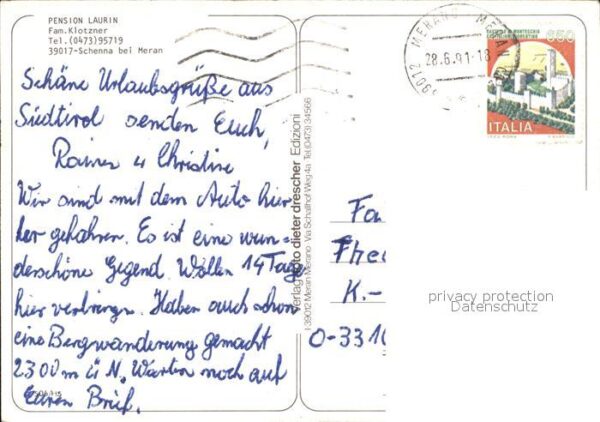 PENSION LAURIN
Fam.Klotzner
Tel.(0473)95719
39017-Schenna bei Meran
Schöne Urlaubsgrüße aus
Südtirol senden Euch,
Rainer u Christine
Wir sind mit dem Auto hier
her gefahren. Es ist eine wun-
derschöne Gegend. Wollen 14 Tage
hier verbringen. Haben auch schon
eine Bergwanderung gemacht
2300 m ü N. Warten noch auf
Euren Brief.
Verlag foto dieter drescher Edizioni
I-39012 Meran Merano Via Schaffhof Weg 4a Tel.(0473) 34566
39012 MERANO MERAN
28.6.91-18
650
ITALIA
Fa
K.-
O-331
privacy protection
Datenschutz